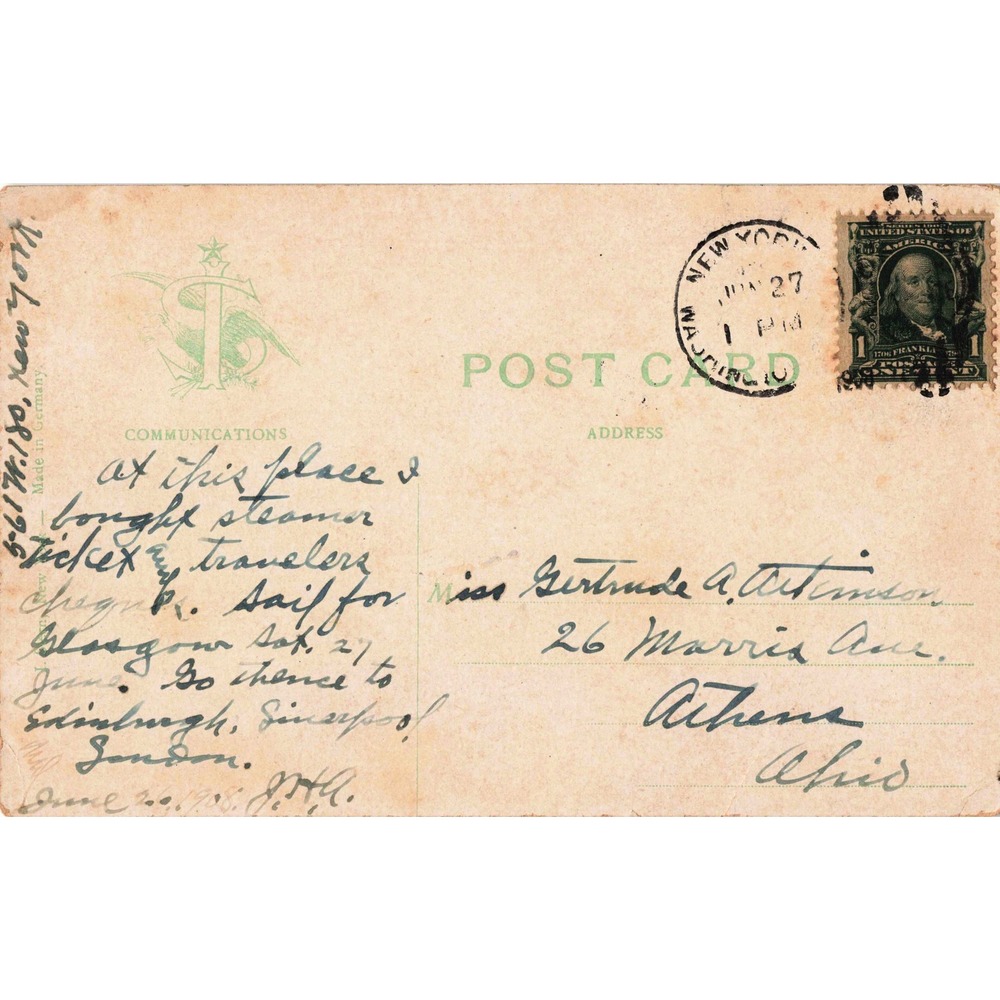 561 W. 180, New York
Made in Germany.
COMMUNICATIONS
At this place I
bought steamer
ticket and travelers
cheques. Sail for
Glasgow Sat. 27
June. Go thence to
Edinburgh, Liverpool,
London.
June 26, 1908. J.H.A.
NEW YORK
JUN 27
1 PM
SERIES 1902
UNITED STATES OF
AMERICA
1 1
1706 FRANKLIN
POSTAGE
ONE CENT
POST CARD
ADDRESS
Miss Gertrude A. Atkinson
26 Morris Ave.
Athens
Ohio